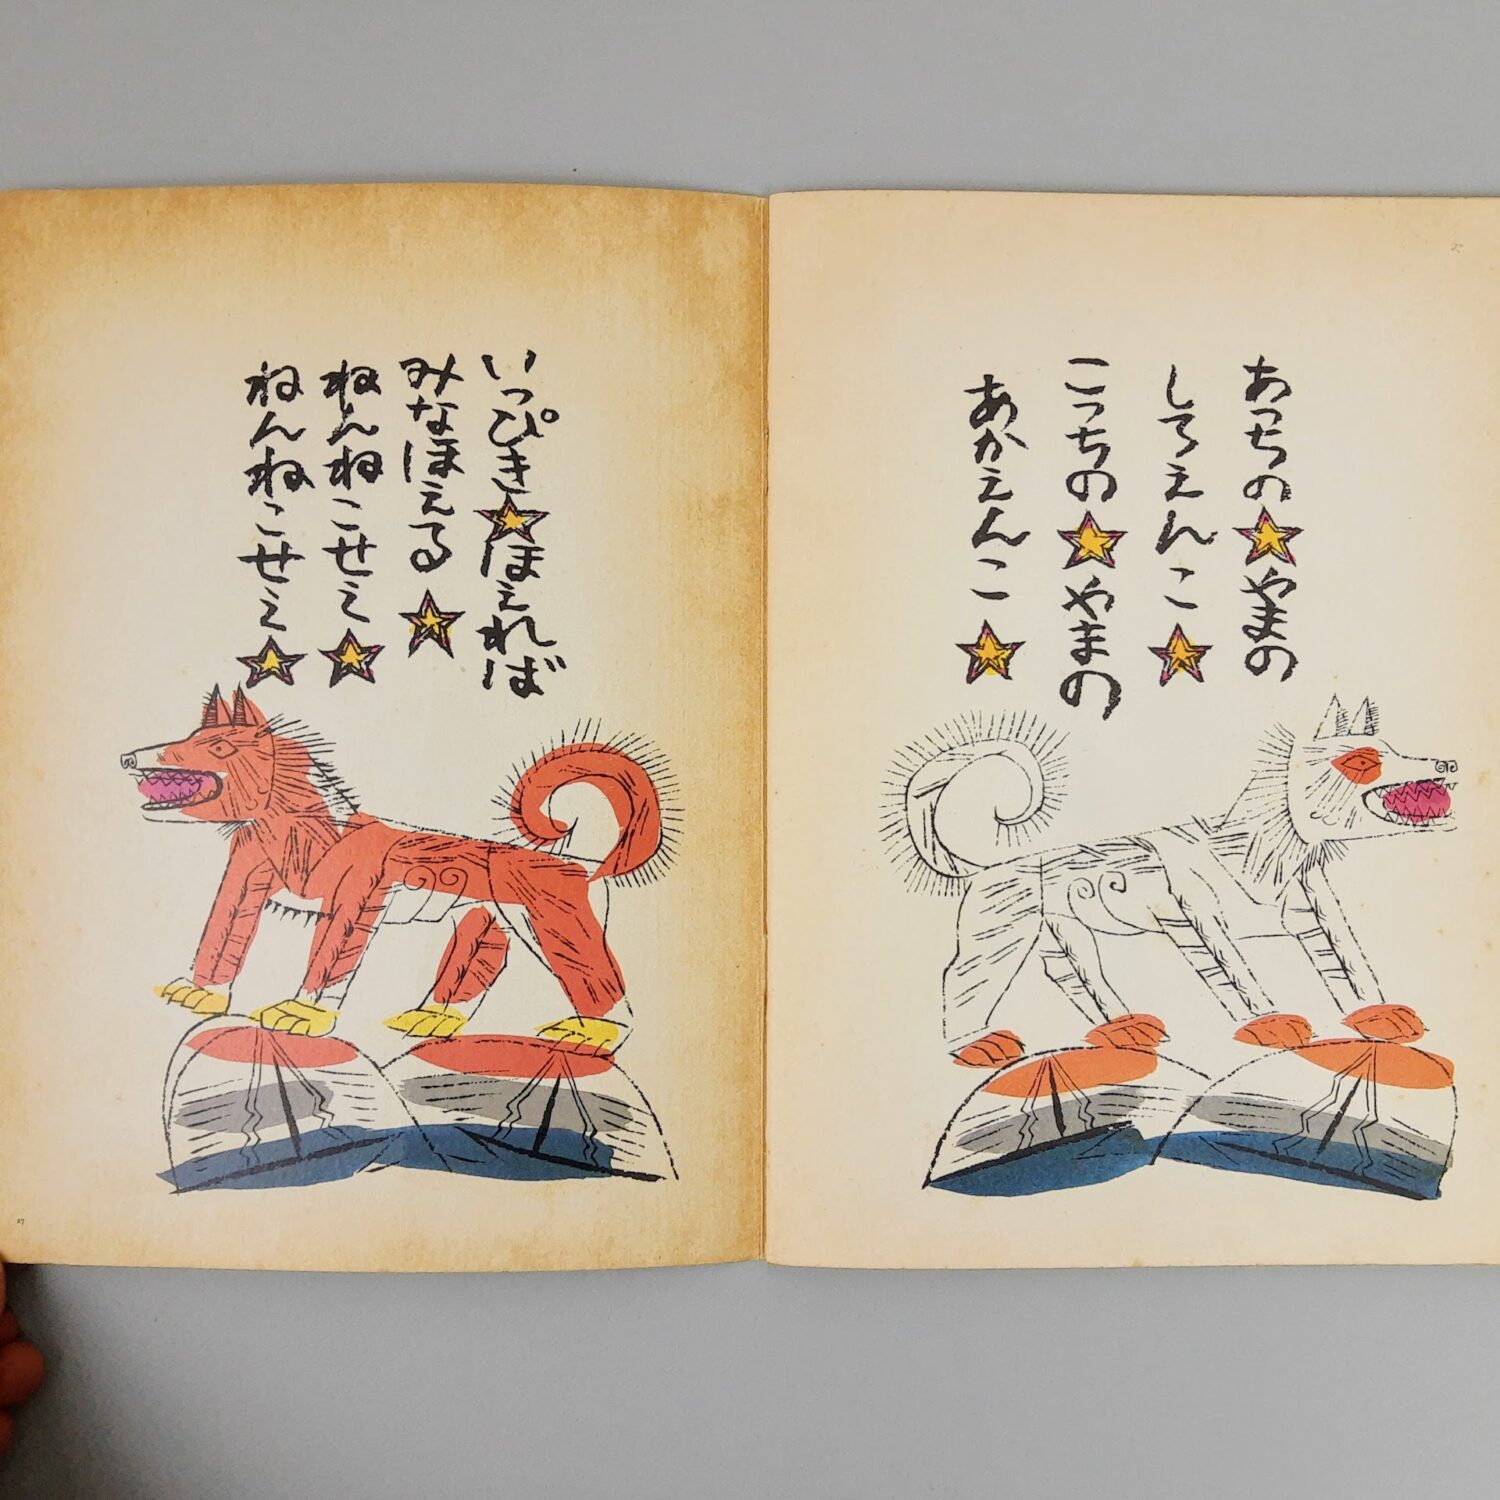 あっちの やまの
しろえんこ
こっちの やまの
あかえんこ
いっぴき ほえれば
みなほえる
ねんねこせえ
ねんねこせえ
27